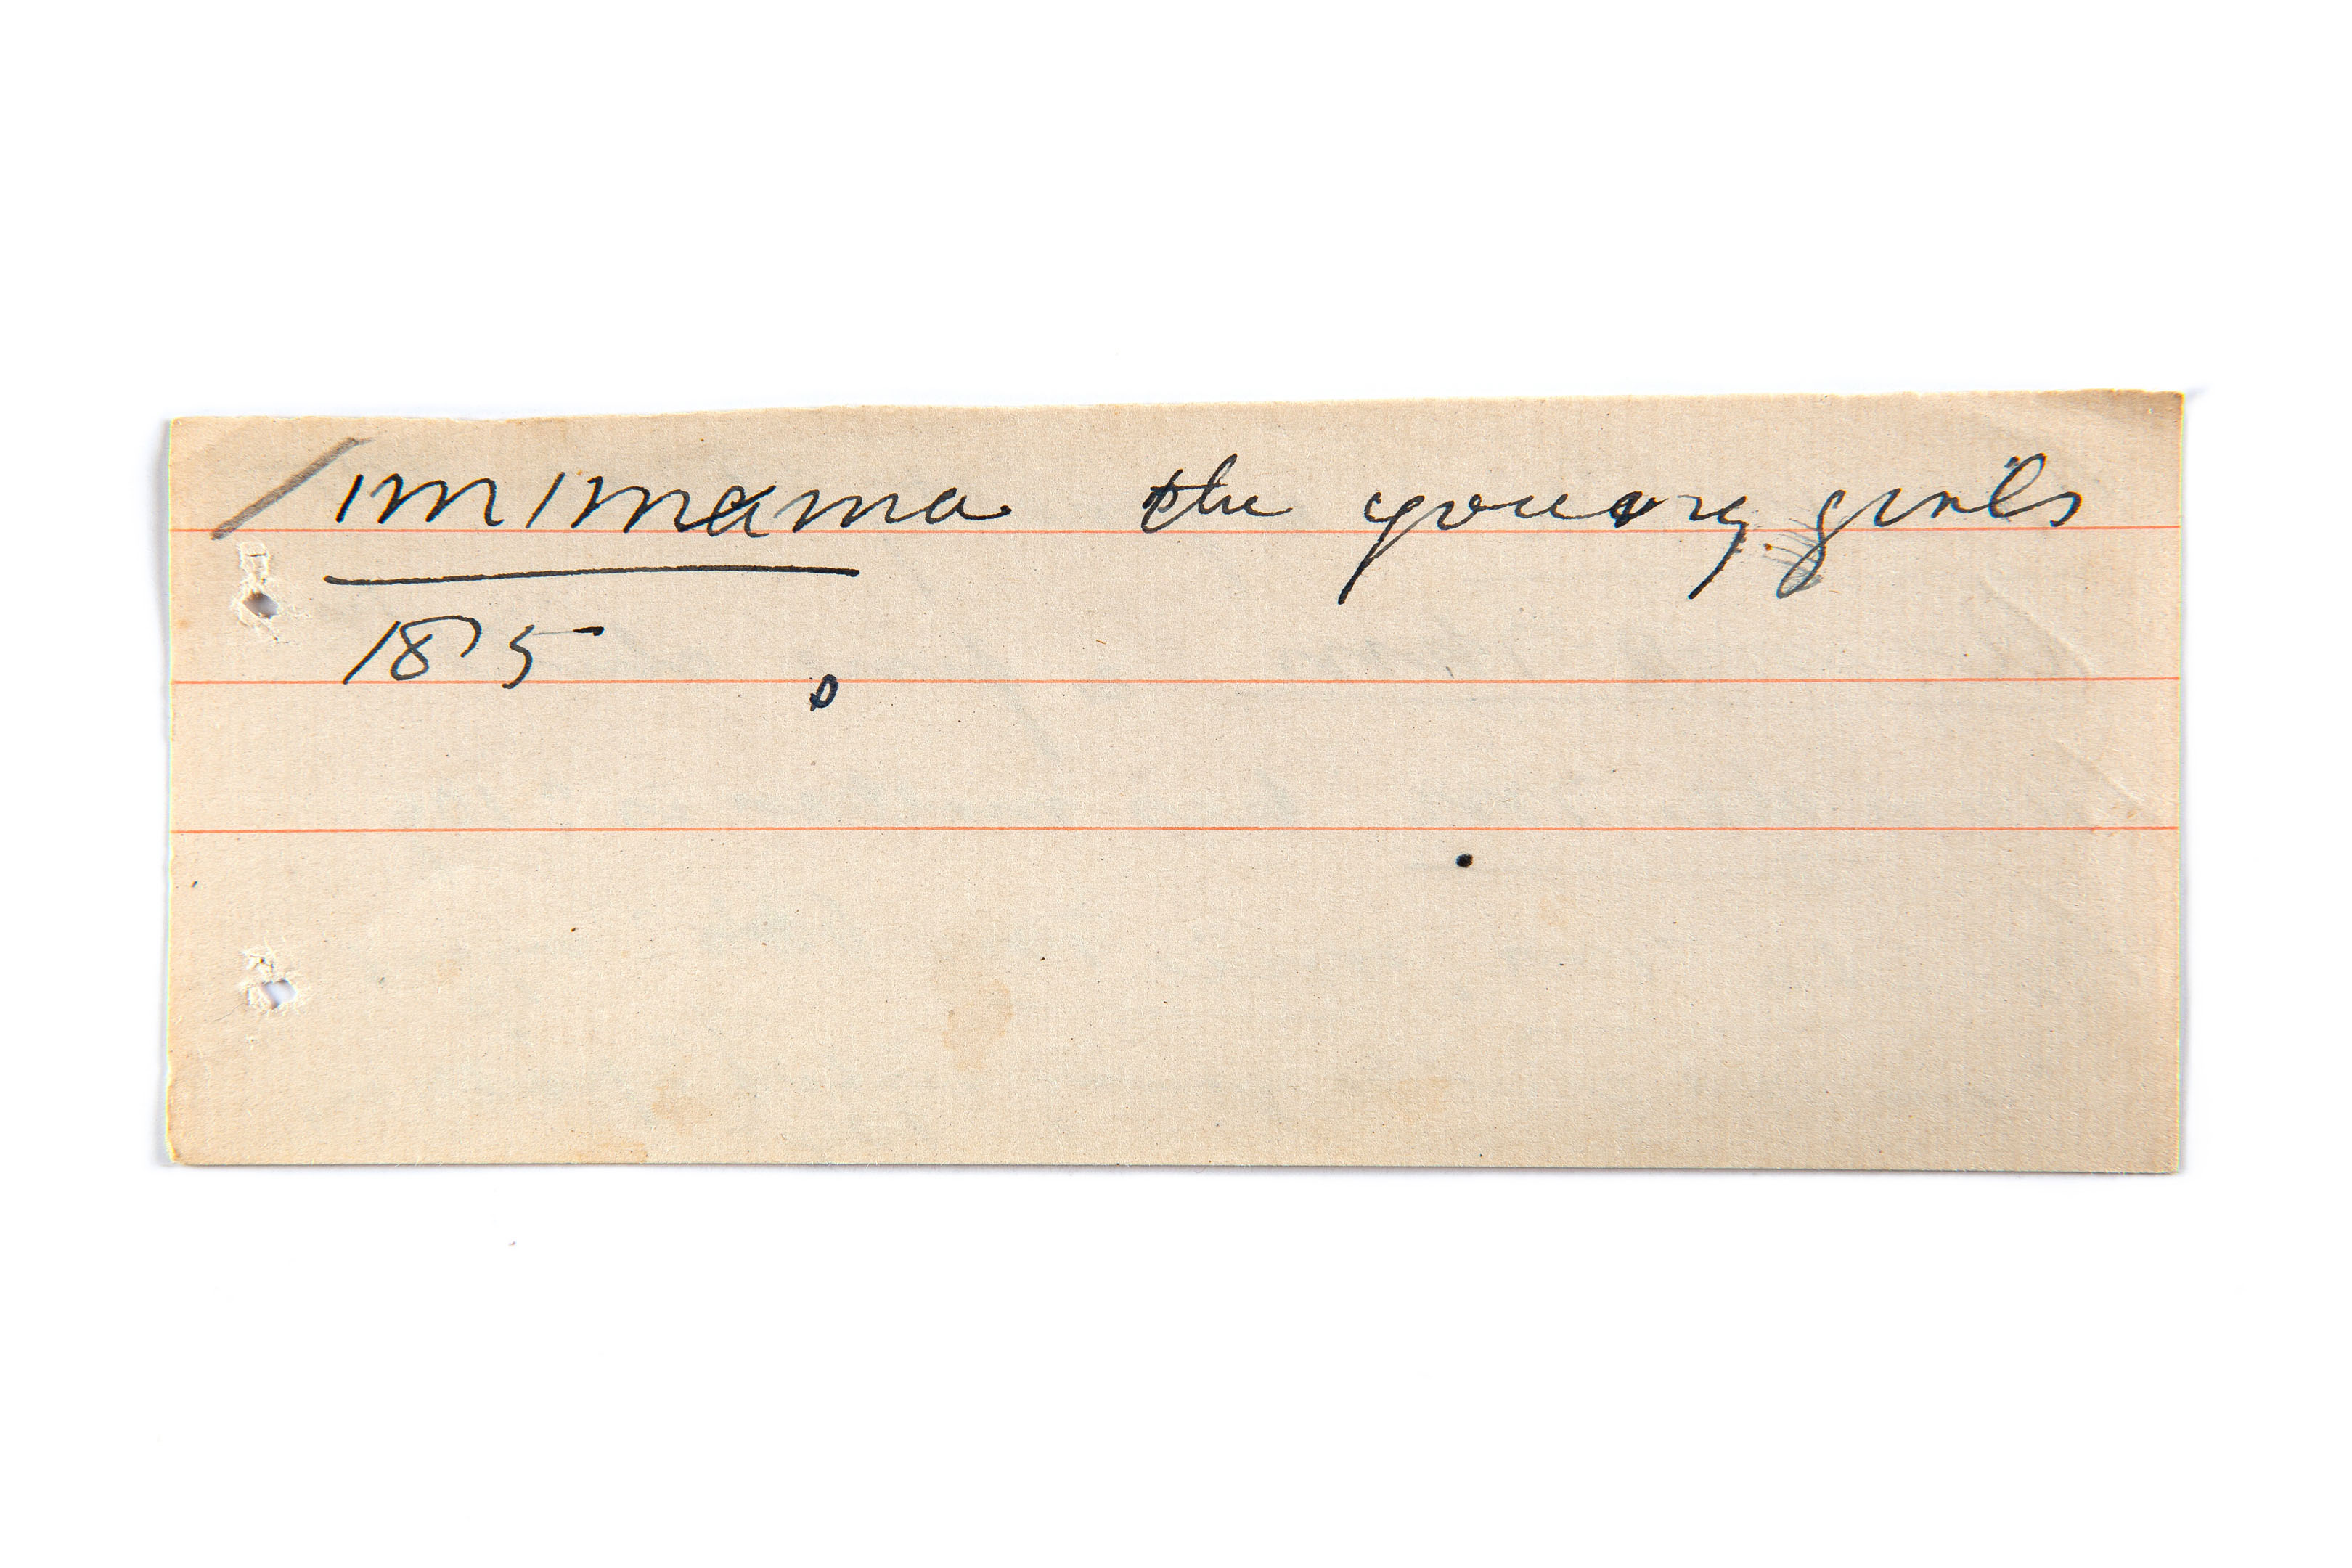 imimama the young girls
185